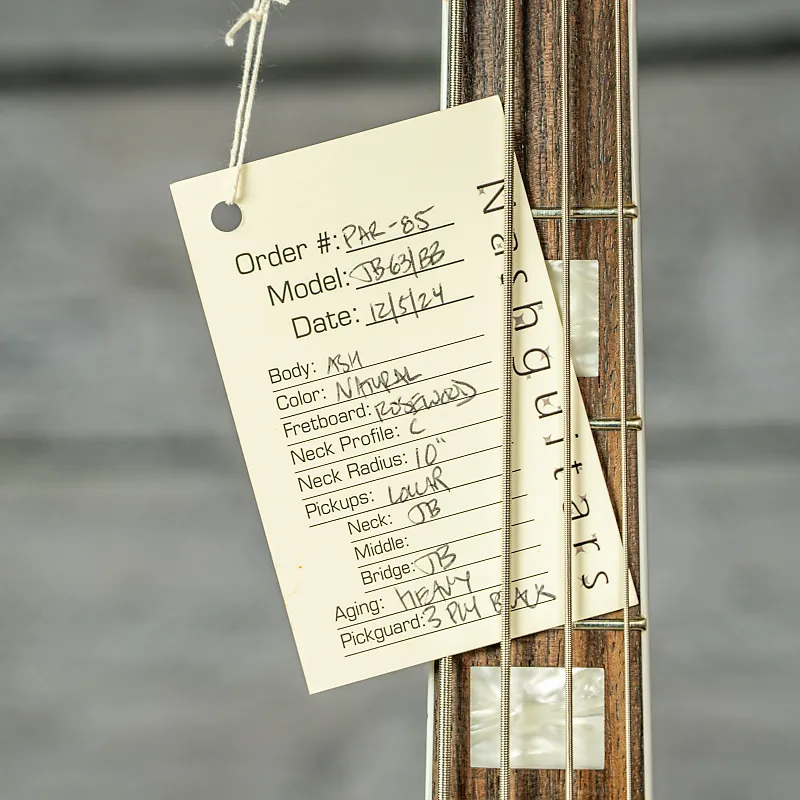 Order #: PAR-85
Model: JB63/BB
Date: 12/5/24
Body: ASH
Color: NATURAL
Fretboard: ROSEWOOD
Neck Profile: C
Neck Radius: 10"
Pickups: LOLLAR
Neck: JB
Middle:
Bridge: JB
Aging: HEAVY
Pickguard: 3 PLY BLACK
Nashguitars